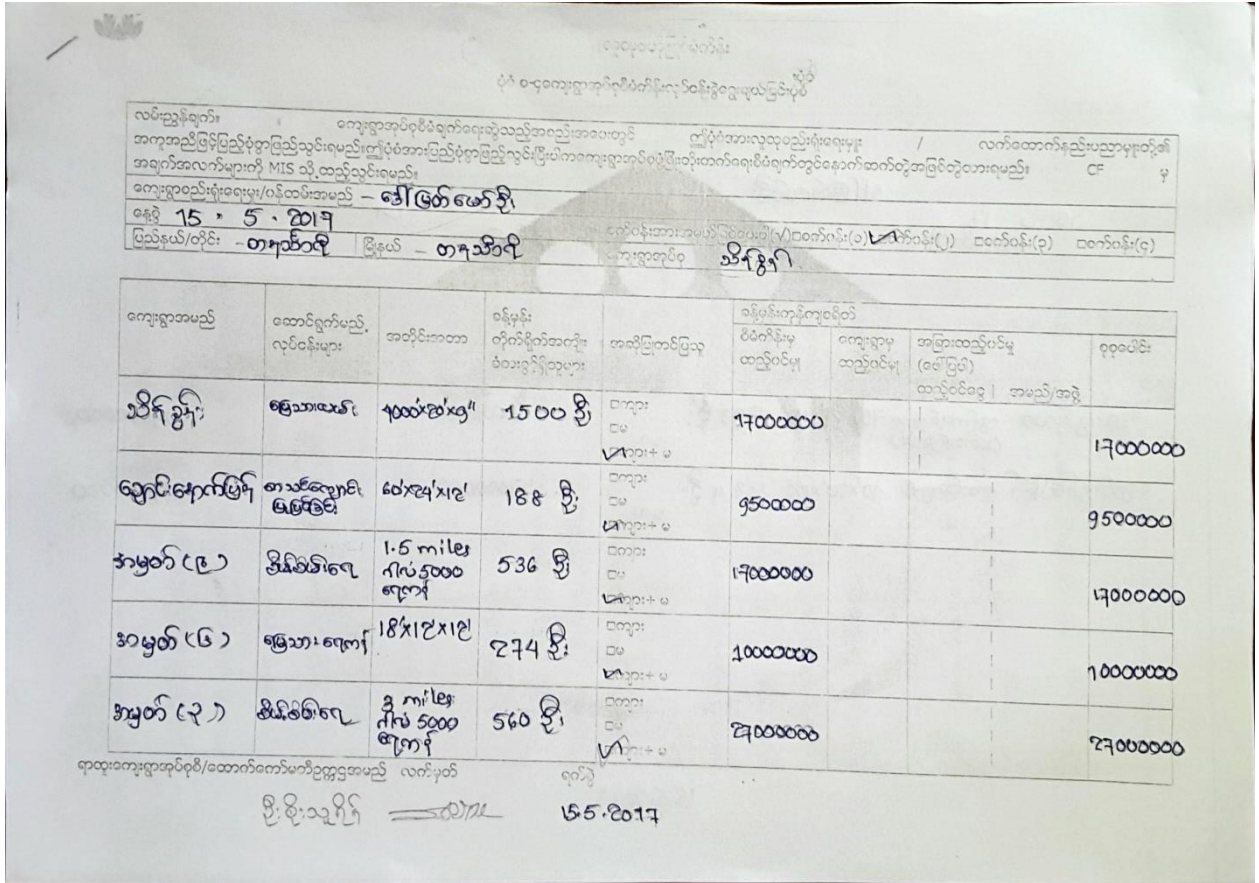 ပုံစံ ၁-၄ကျေးရွာအုပ်စုစီမံကိန်းလုပ်ငန်းခွဲရွေးချယ်ခြင်းပုံစံ
လမ်းညွှန်ချက်။ ကျေးရွာအုပ်စုစီမံချက်ရေးဆွဲသည့်အစည်းအဝေးတွင် ဤပုံစံအားလူထုစည်းရုံးရေးမှူး / လက်ထောက်နည်းပညာမှူးတို့၏
အကူအညီဖြင့်ပြည့်စုံစွာဖြည့်သွင်းရမည်။ဤပုံစံအားပြည့်စုံစွာဖြည့်သွင်းပြီးပါကကျေးရွာအုပ်စုဖွံ့ဖြိုးတိုးတက်ရေးစီမံချက်တွင်နောက်ဆက်တွဲအဖြစ်တွဲထားရမည်။ CF မှ
အချက်အလက်များကို MIS သို့ ထည့်သွင်းရမည်။
ကျေးရွာစည်းရုံးရေးမှူး/ဝန်ထမ်းအမည် – ဒေါ်မြတ်မော်ဦး
နေ့စွဲ 15 . 5 . 2017
□စက်ဝန်း(၁) စက်ဝန်း(၂) □စက်ဝန်း(၃) □စက်ဝန်း(၄)
ပြည်နယ်/တိုင်း - တနင်္သာရီ မြို့နယ် – တနင်္သာရီ ကျေးရွာအုပ်စု သိန်ခွန်း
ကျေးရွာအမည် ဆောင်ရွက်မည့် လုပ်ငန်းများ အတိုင်းအတာ ခန့်မှန်း တိုက်ရိုက်အကျိုး ခံစားခွင့်ရှိသူများ အဆိုပြုတင်ပြသူ ခန့်မှန်းကုန်ကျစရိတ်
စီမံကိန်းမှ ထည့်ဝင်မှု ကျေးရွာမှ ထည့်ဝင်မှု အခြားထည့်ဝင်မှု (ဖော်ပြပါ) ထည့်ဝင်ငွေ အမည်/အဖွဲ့ စုစုပေါင်း
သိန်ခွန်း မြေသားလမ်း 4000'x20'x9" 1500 ဦး □ကျား □မ ကျား+ မ 17000000 17000000
ချောင်းနောက်ပြန် စာသင်ကျောင်း ပြုပြင်ခြင်း 60'x24'x12' 188 ဦး □ကျား □မ ကျား+ မ 9500000 9500000
အမှတ် (၉) စိမ့်စမ်းရေ 1.5 miles ဂါလံ 5000 ရေကန် 536 ဦး □ကျား □မ ကျား+ မ 17000000 17000000
အမှတ် (၆) မြေသားရေကန် 18'x12'x12' 274 ဦး □ကျား □မ ကျား+ မ 10000000 10000000
အမှတ် (၃) စိမ့်စမ်းရေ 3 miles ဂါလံ 5000 ရေကန် 560 ဦး □ကျား □မ ကျား+ မ 27000000 27000000
ရာထူးကျေးရွာအုပ်စုစီ/ထောက်ကော်မတီဥက္ကဋ္ဌအမည် လက်မှတ် ရက်စွဲ
ဦးစိုးသူရိန် 15.5.2017